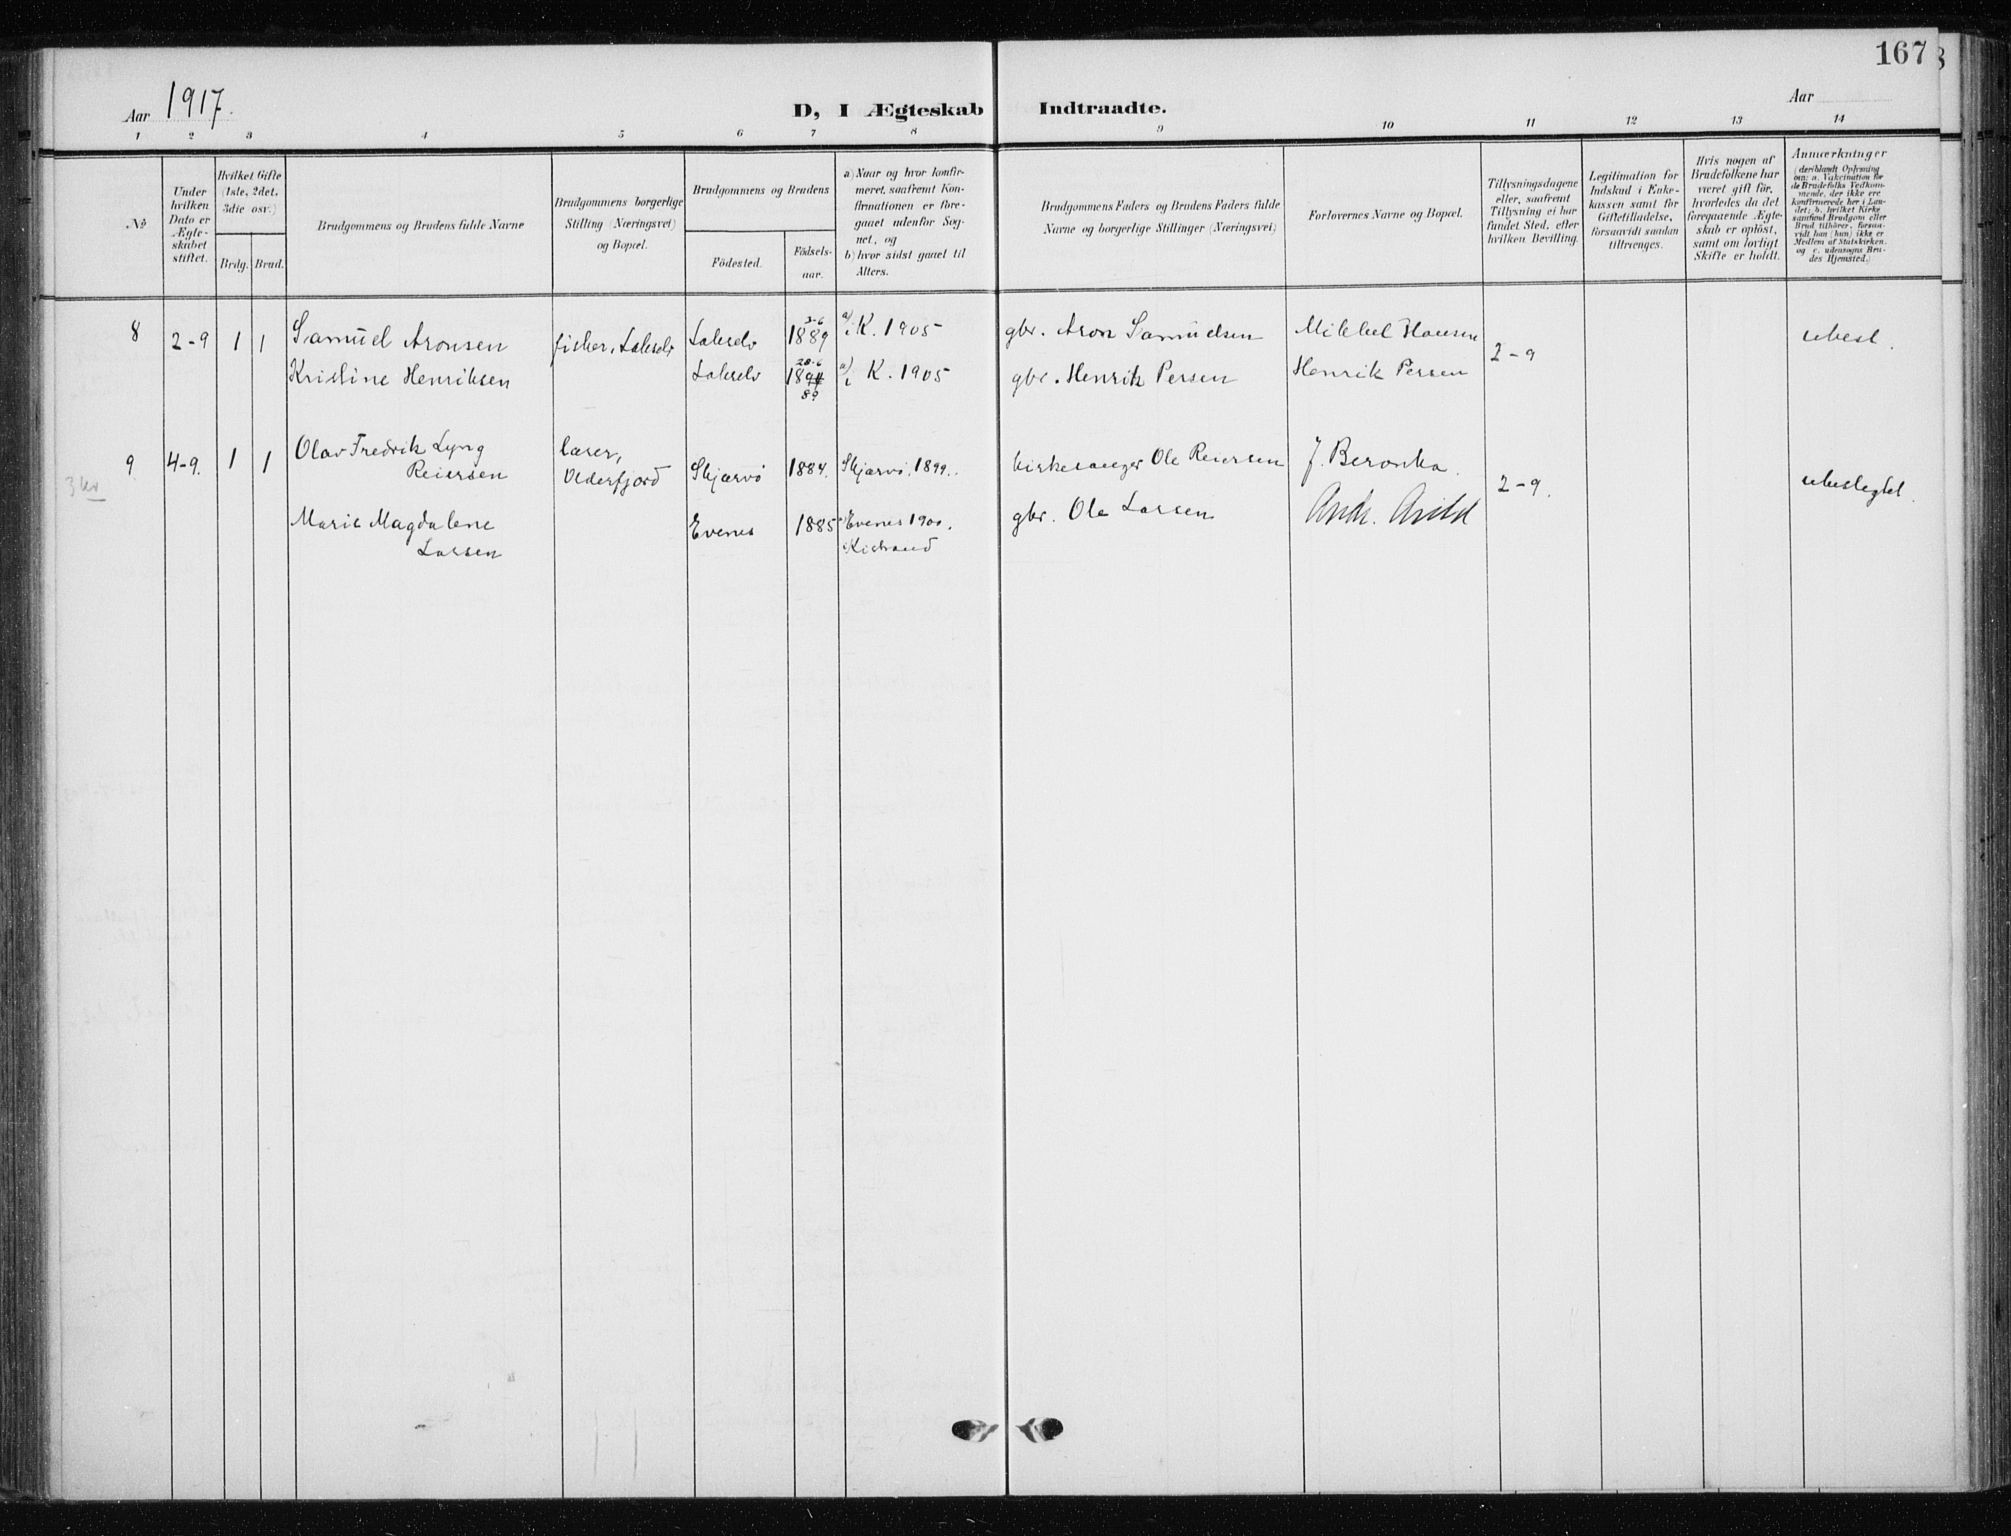 167
Aar 1917.
D, I Ægteskab Indtraadte.
Aar
1 2 3 4 5 6 7 8 9 10 11 12 13 14
No
Under hvilken Dato er Ægteskabet stiftet.
Hvilket Gifte (1ste, 2det, 3die osv.)
Brdg. Brud.
Brudgommens og Brudens fulde Navne
Brudgommens borgerlige Stilling (Næringsvei) og Bopæl.
Brudgommens og Brudens
Födested.
Födsels-aar.
a) Naar og hvor konfir-
meret, saafremt Kon-
firmationen er fore-
gaaet udenfor Sog-
net, og
b) hvor sidst gaaet til
Alters.
Brudgommens Faders og Brudens Faders fulde
Navne og borgerlige Stillinger (Næringsvei)
Forlovernes Navne og Bopæl.
Tillysningsdagene
eller, saafremt
Tillysning ei har
fundet Sted, efter
hvilken Bevilling.
Legitimation for
Indskud i Enke-
kassen samt for
Giftetilladelse,
forsaavidt saadan
tiltrænges.
Hvis nogen af
Brudefolkene har
været gift för,
hvorledes da det
foregaaende Ægte-
skab er oplöst,
samt om lovligt
Skifte er holdt.
Anmærkninger
(deriblandt Oplysning
om: a. Vakcination for
de Brudefolks Vedkom-
mende, der ikke ere
konfirmerede her i Lan-
det; b. hvilket Kirke-
samfund Brudgom eller
Brud tilhörer, forsaa-
vidt han (hun) ikke er
Medlem af Statskirken.
og c. udensogns Bru-
des Hjemsted.)
8 2-9 1 1 Samuel Aronsen fisker, Lakselv Lakselv 3-6 1889 a) i K. 1905 gbr. Aron Samuelsen Mikkel Hansen 2-9 ubesl.
Kristine Henriksen Lakselv 28-6 1894 89 a) i K. 1905 gbr. Henrik Persen Henrik Persen
9 4-9. 1 1 Olav Fredrik Lyng
Reiersen lærer,
Olderfjord Skjærvö 1884. Skjærvö, 1899. kirkesanger Ole Reiersen J. Beronka. 2-9. ubeslegtet.
3 kr
Marie Magdalene
Larsen Evenes 1885 Evenes 1900.
Kistrand gbr. Ole Larsen Andr. Arild